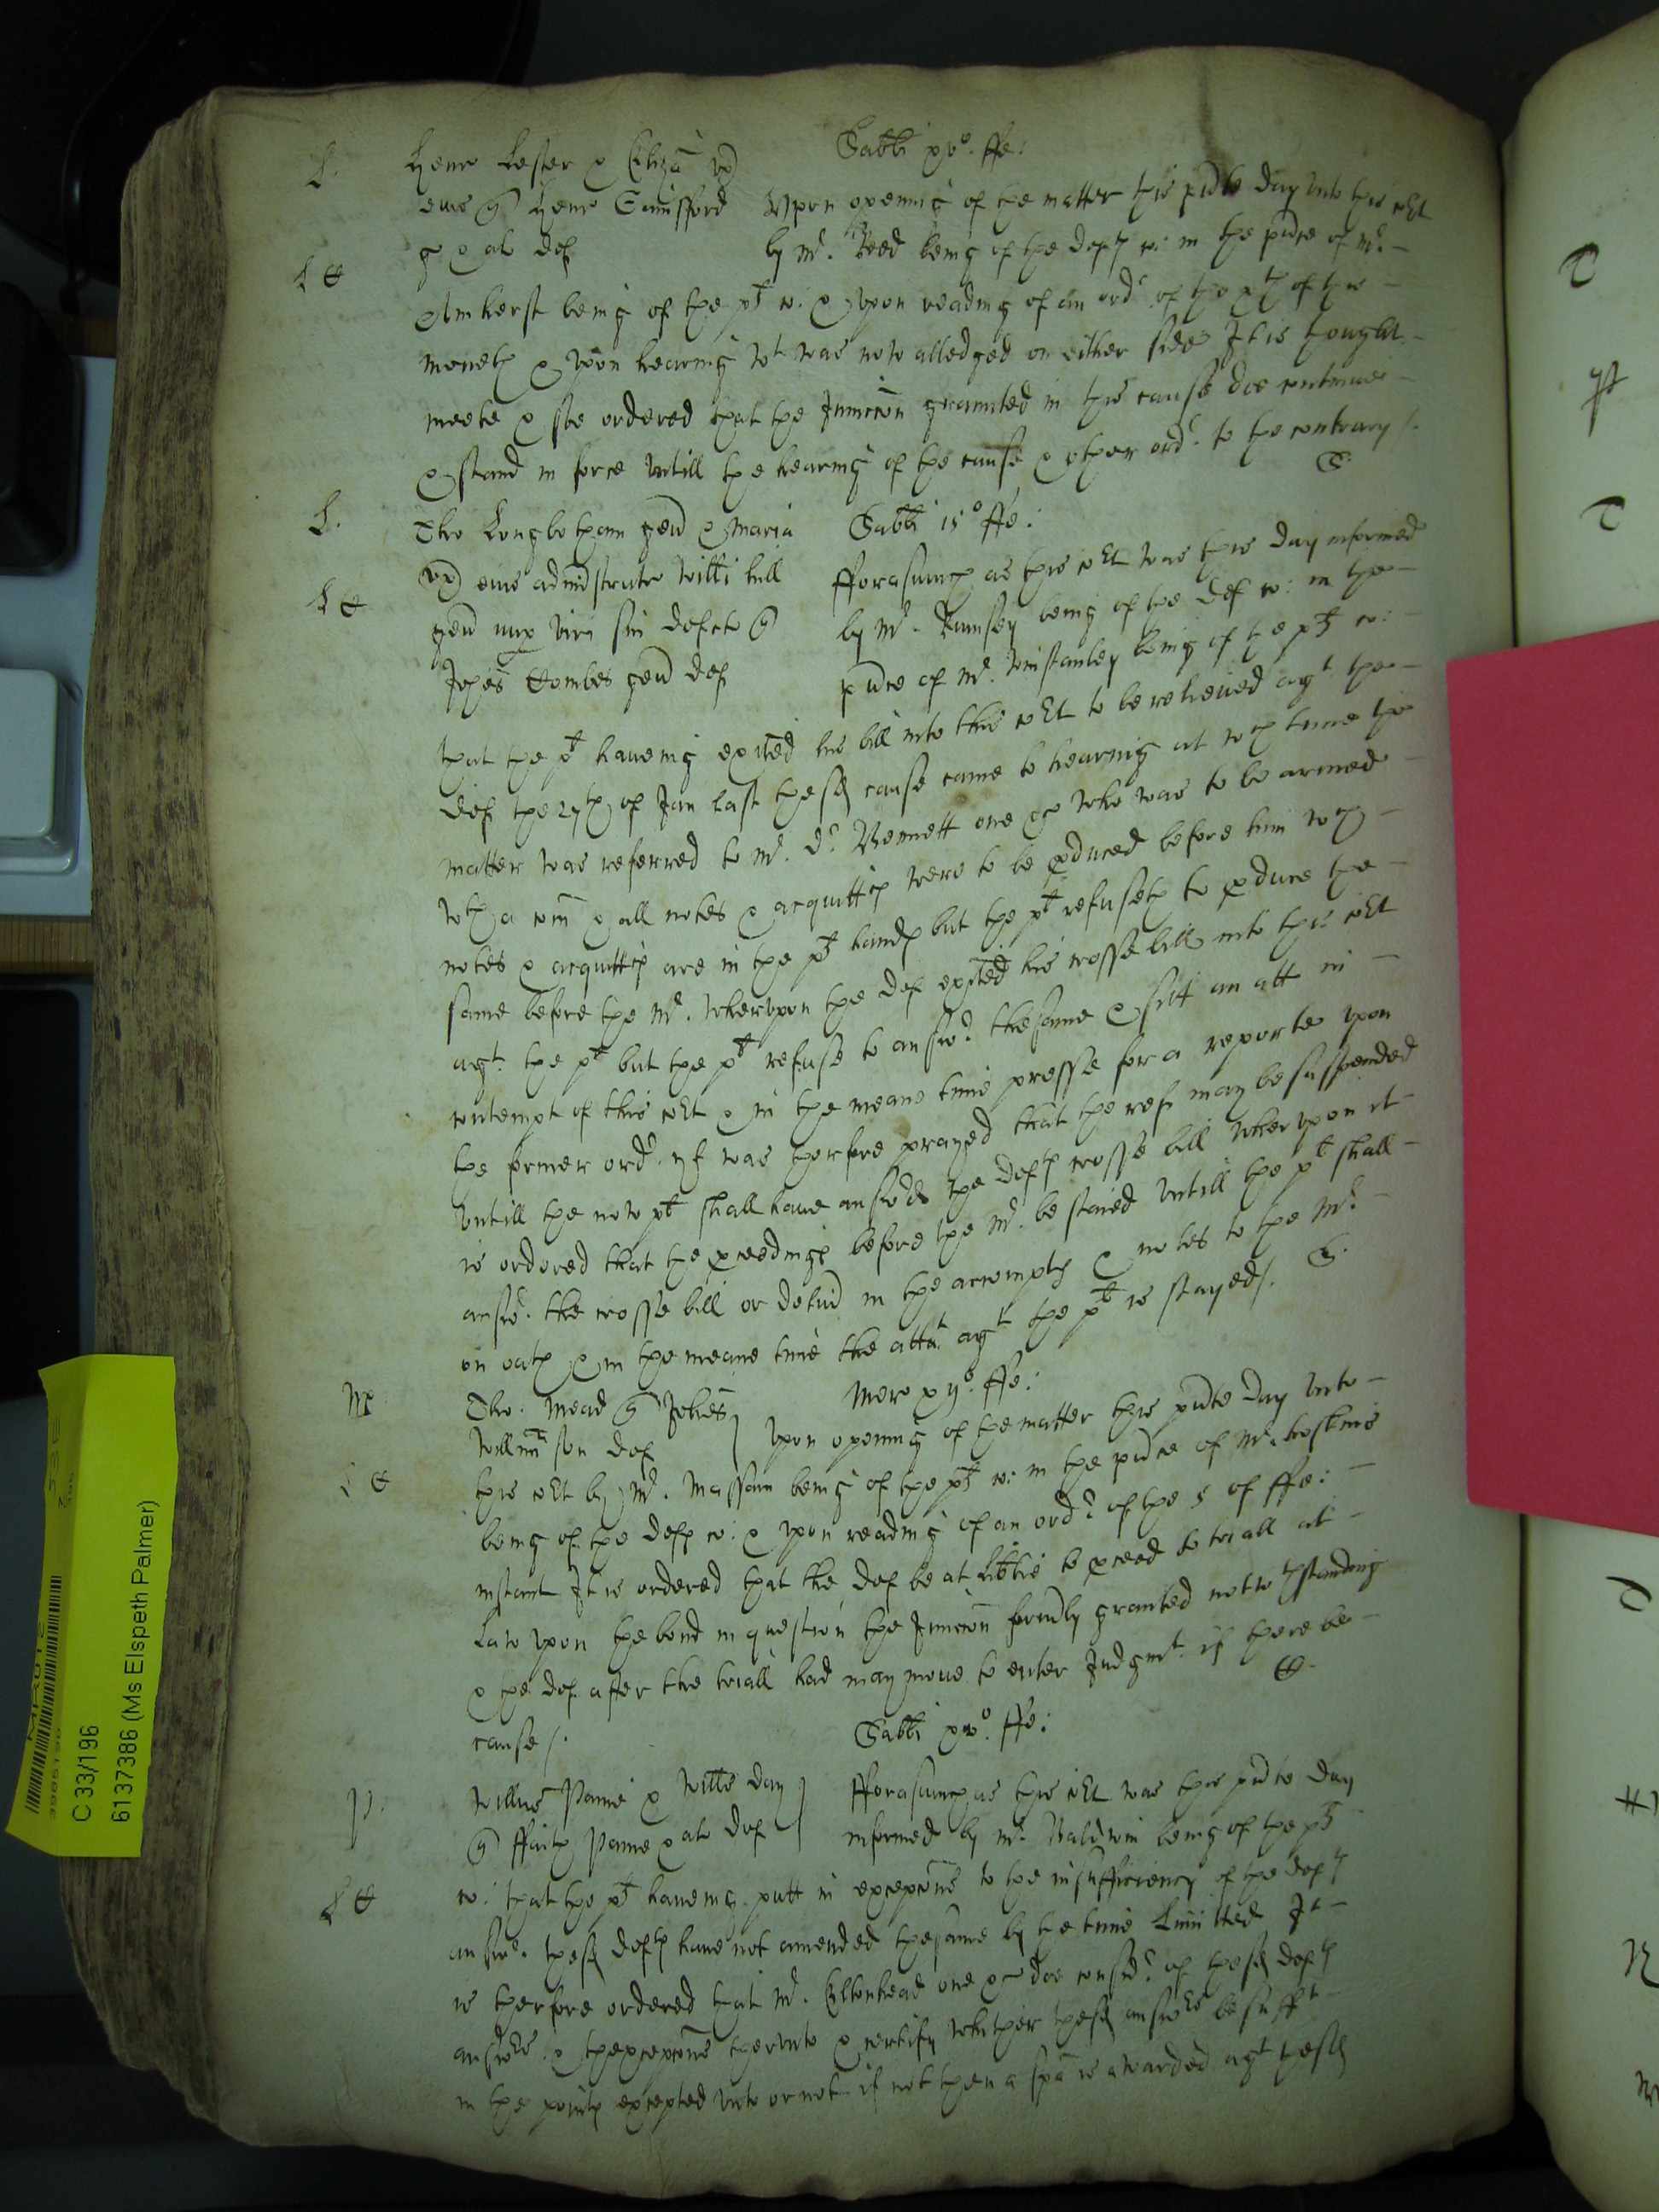 Sabbti xvo. ffe:
L. Henr Lester & Eliza ux
eius Henr Gainsford Upon openinge of the matter this pnte day unto this cort
& al def by Mr. Reed being of the defts co: in the pnce of Mr.
Amherst being of the plt co. & upon reading of an ordr of the xth of this
moneth & upon hearing wt was now alledged on either side It is thought
meete & soe ordered that the Iniuncon graunted in this cause doe continue
& stand in force untill the hearing of the cause & other ordr. to the contrary /.
L. Tho Longbotham gen & Maria Sabbti 15o ffe:
ux eius administratr Willi hill fforasmuch as this cort was this day informed
gen nup viri sui defcti by Mr. Rumsey being of the def co: in the
Johes Combes gen def pnce of Mr. Winstanley being of the plt co:
that the plt haveing exited his bill into this cort to be relieved agt. the
def the 27th of Jan last the sd cause came to hearing at wch time the
matter was referred to Mr. Dr. Bennett one &c who was to be armed
wth a com & all notes & acquittes were to be produced before him wch
notes & acquittes are in the plt hands but the plt refuseth to produce the
same before the Mr. Wherupon the def exited his crosse bill into this cort
agt. the plt but the plt refuse to answr. the same & sitt an att in
contempt of this cort & in the meane time presse for a reporte upon
the former ordr. yt was therfore prayed that the refr may be suspended
Untill the now plt shall have answerd the defts crosse bill Wherupon it
is ordered that the proceedings before the Mr. be staied Untill the plt shall
answr. the crosse bill or in the accompts & notes to the Mr.
on oath & in the meane time the atta. agt the plt is stayed /.
Tho. Mead Johes Merc xijo. ffe:
Willmson def Upon opening of the matter this pnte day unto
this cort by Mr. Massam being of the plt co: in the pnce of Mr. hoskins
being of the defts co: & upon reading of an ordr of the 5 of ffe:
instant It is ordered that the def be at libtie to proceed to triall at
Law upon the bond in question the Iniuncon formly granted notwthstanding
& the def after the triall had may move to enter Judgmt. if there be
cause /. Sabbti xvo. ffe:
P. Willus Paine & Willis Day fforasmuch as this cort was this pnte day
ffaith Paine & ale def informed by Mr. Baldwin being of the plt
co: that the plt haveing putt in excepcons to the insufficiency of the defts
answr. the sd defts have not amended the same by the time Limitted It
is therfore ordered that Mr. Eltonhead one &c doe consider of the sd defts
answers & the excepcons therunto & certify whither the sd answers be sufft
in the points excepted unto or not if not then a spa is awarded agt the sd
C 33/196
6137386 (Ms Elspeth Palmer)